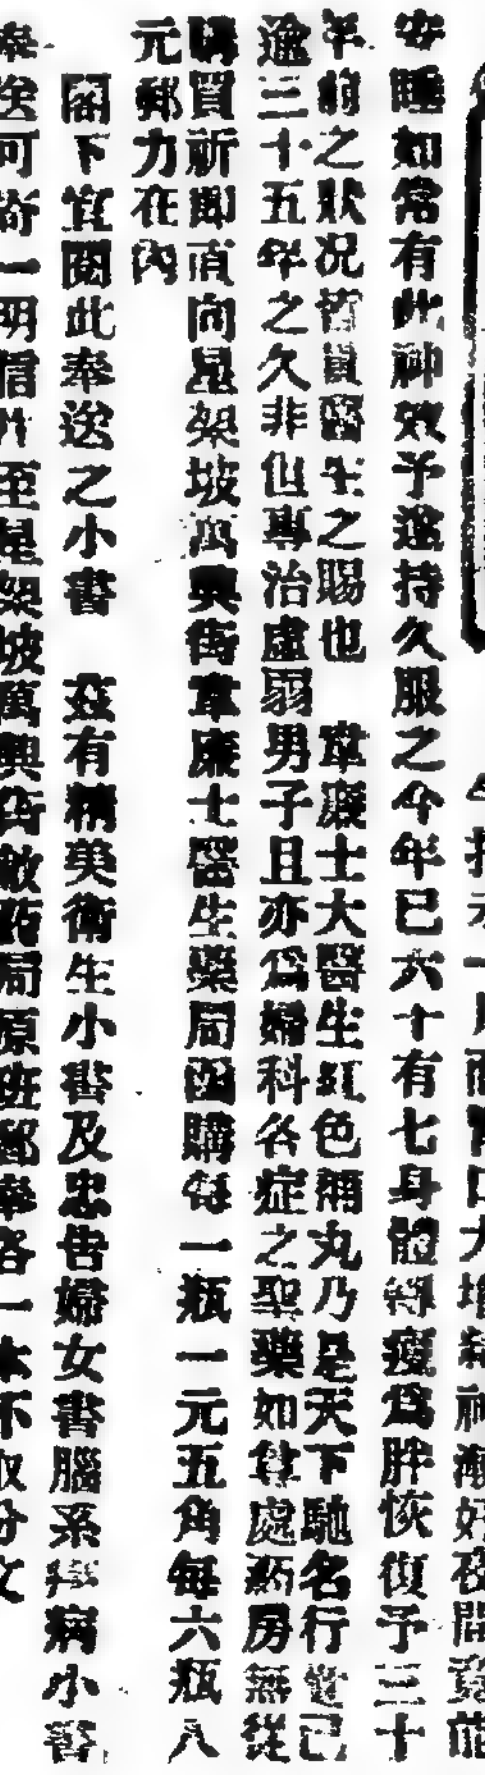 今指示一月而胃口大增精神漸好夜間竟能
安睡如常有此神效予遂持久服之今年已六十有七身體轉瘦為胖恢復予三十
年前之狀况皆貴醫生之賜也　韋廉士大醫生紅色補丸乃是天下馳名行世已
逾三十五年之久非但專治虛弱男子且亦為婦科各症之聖藥如貴處药房無從
購買祈即直向星架坡萬興街韋廉士醫生藥局函購每一瓶一元五角每六瓶八
元郵力在內
閣下宜閱此奉送之小書　茲有精美衛生小書及忠告婦女書腦系病小書
奉送可寄一明信片至星架坡萬興街敝药局原班郵奉各一本不取分文